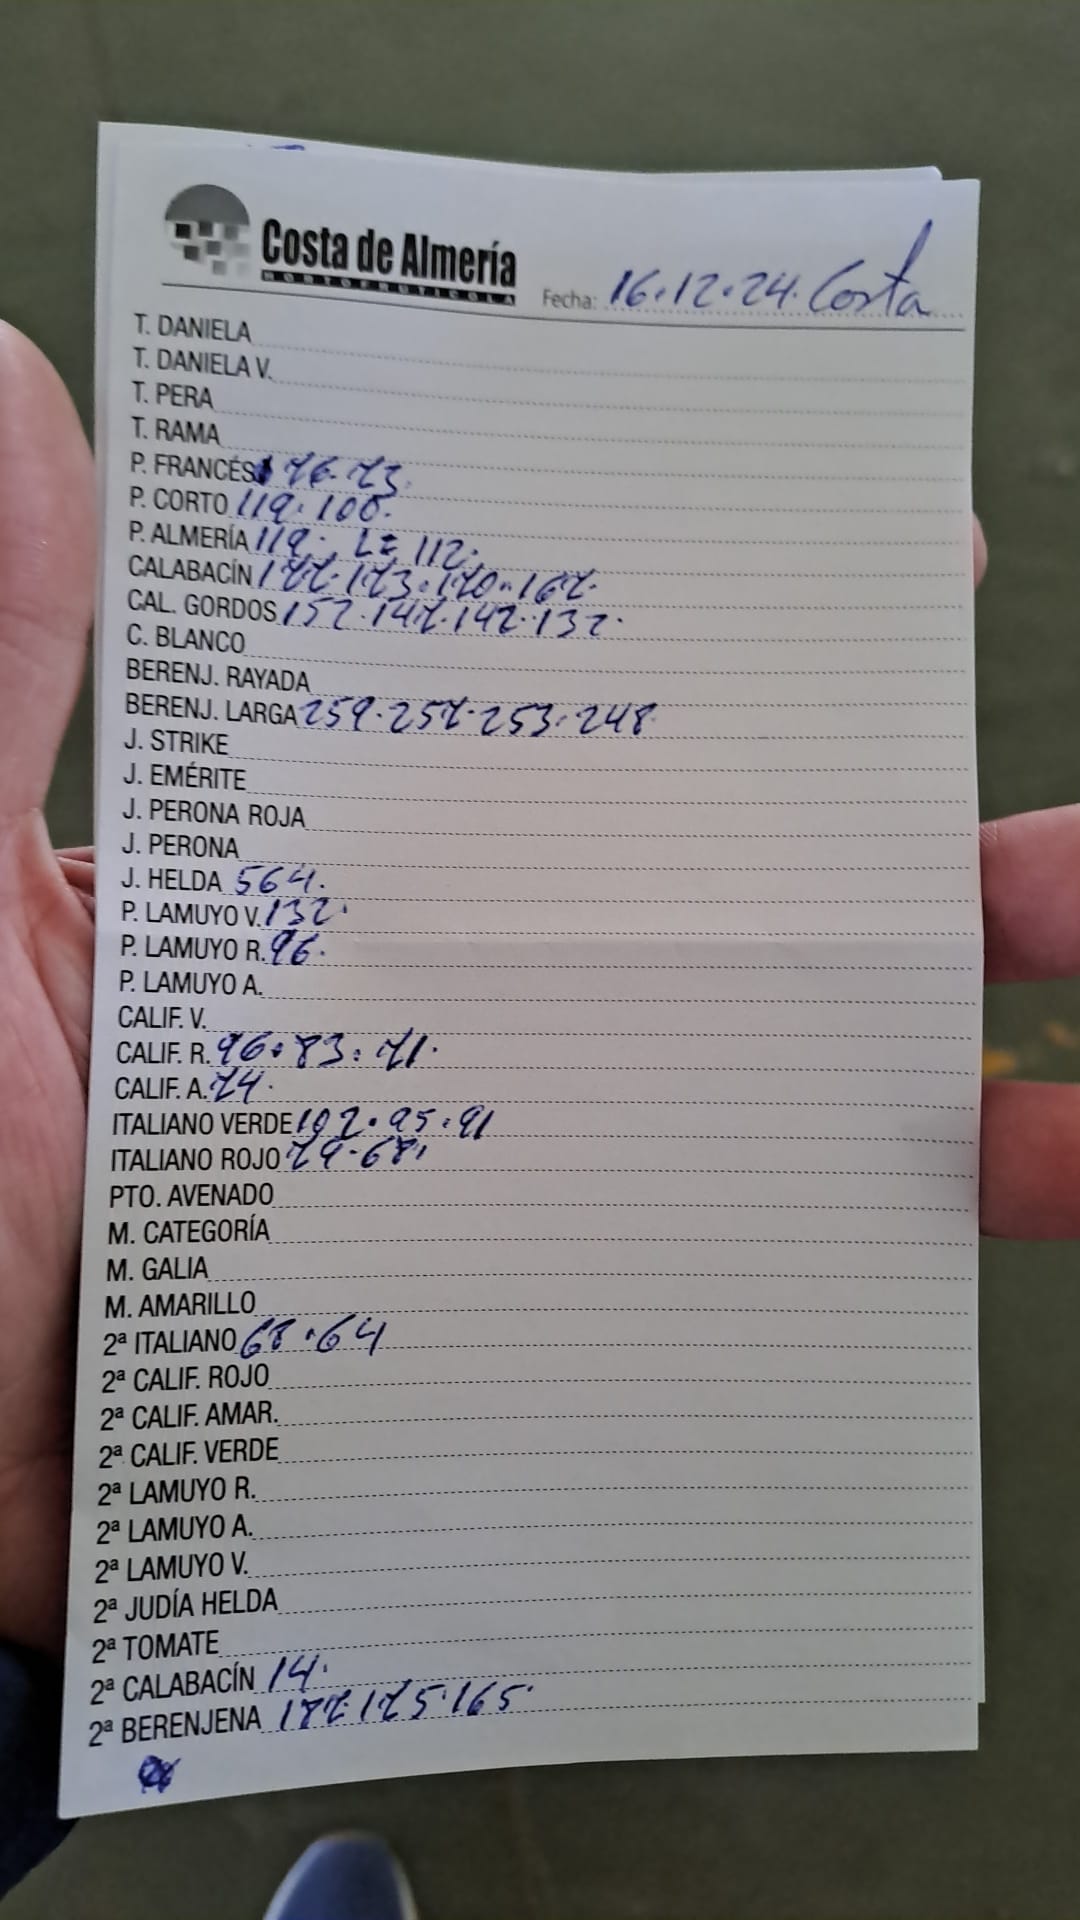 Costa de Almería
HORTOFRUTICOLA
Fecha: 16.12.24. Costa
T. DANIELA
T. DANIELA V.
T. PERA
T. RAMA
P. FRANCÉS 76.73.
P. CORTO 119. 100.
P. ALMERÍA 119. L= 112.
CALABACÍN 177.173.170.167.
CAL. GORDOS 152.147.142.132.
C. BLANCO
BERENJ. RAYADA
BERENJ. LARGA 259.257.253.248
J. STRIKE
J. EMÉRITE
J. PERONA ROJA
J. PERONA
J. HELDA 564.
P. LAMUYO V. 132.
P. LAMUYO R. 96.
P. LAMUYO A.
CALIF. V.
CALIF. R. 96.83.71.
CALIF. A. 74.
ITALIANO VERDE 102.95.91
ITALIANO ROJO 79.68.
PTO. AVENADO
M. CATEGORÍA
M. GALIA
M. AMARILLO
2ª ITALIANO 68.64
2ª CALIF. ROJO
2ª CALIF. AMAR.
2ª CALIF. VERDE
2ª LAMUYO R.
2ª LAMUYO A.
2ª LAMUYO V.
2ª JUDÍA HELDA
2ª TOMATE
2ª CALABACÍN 14.
2ª BERENJENA 187.175.165.